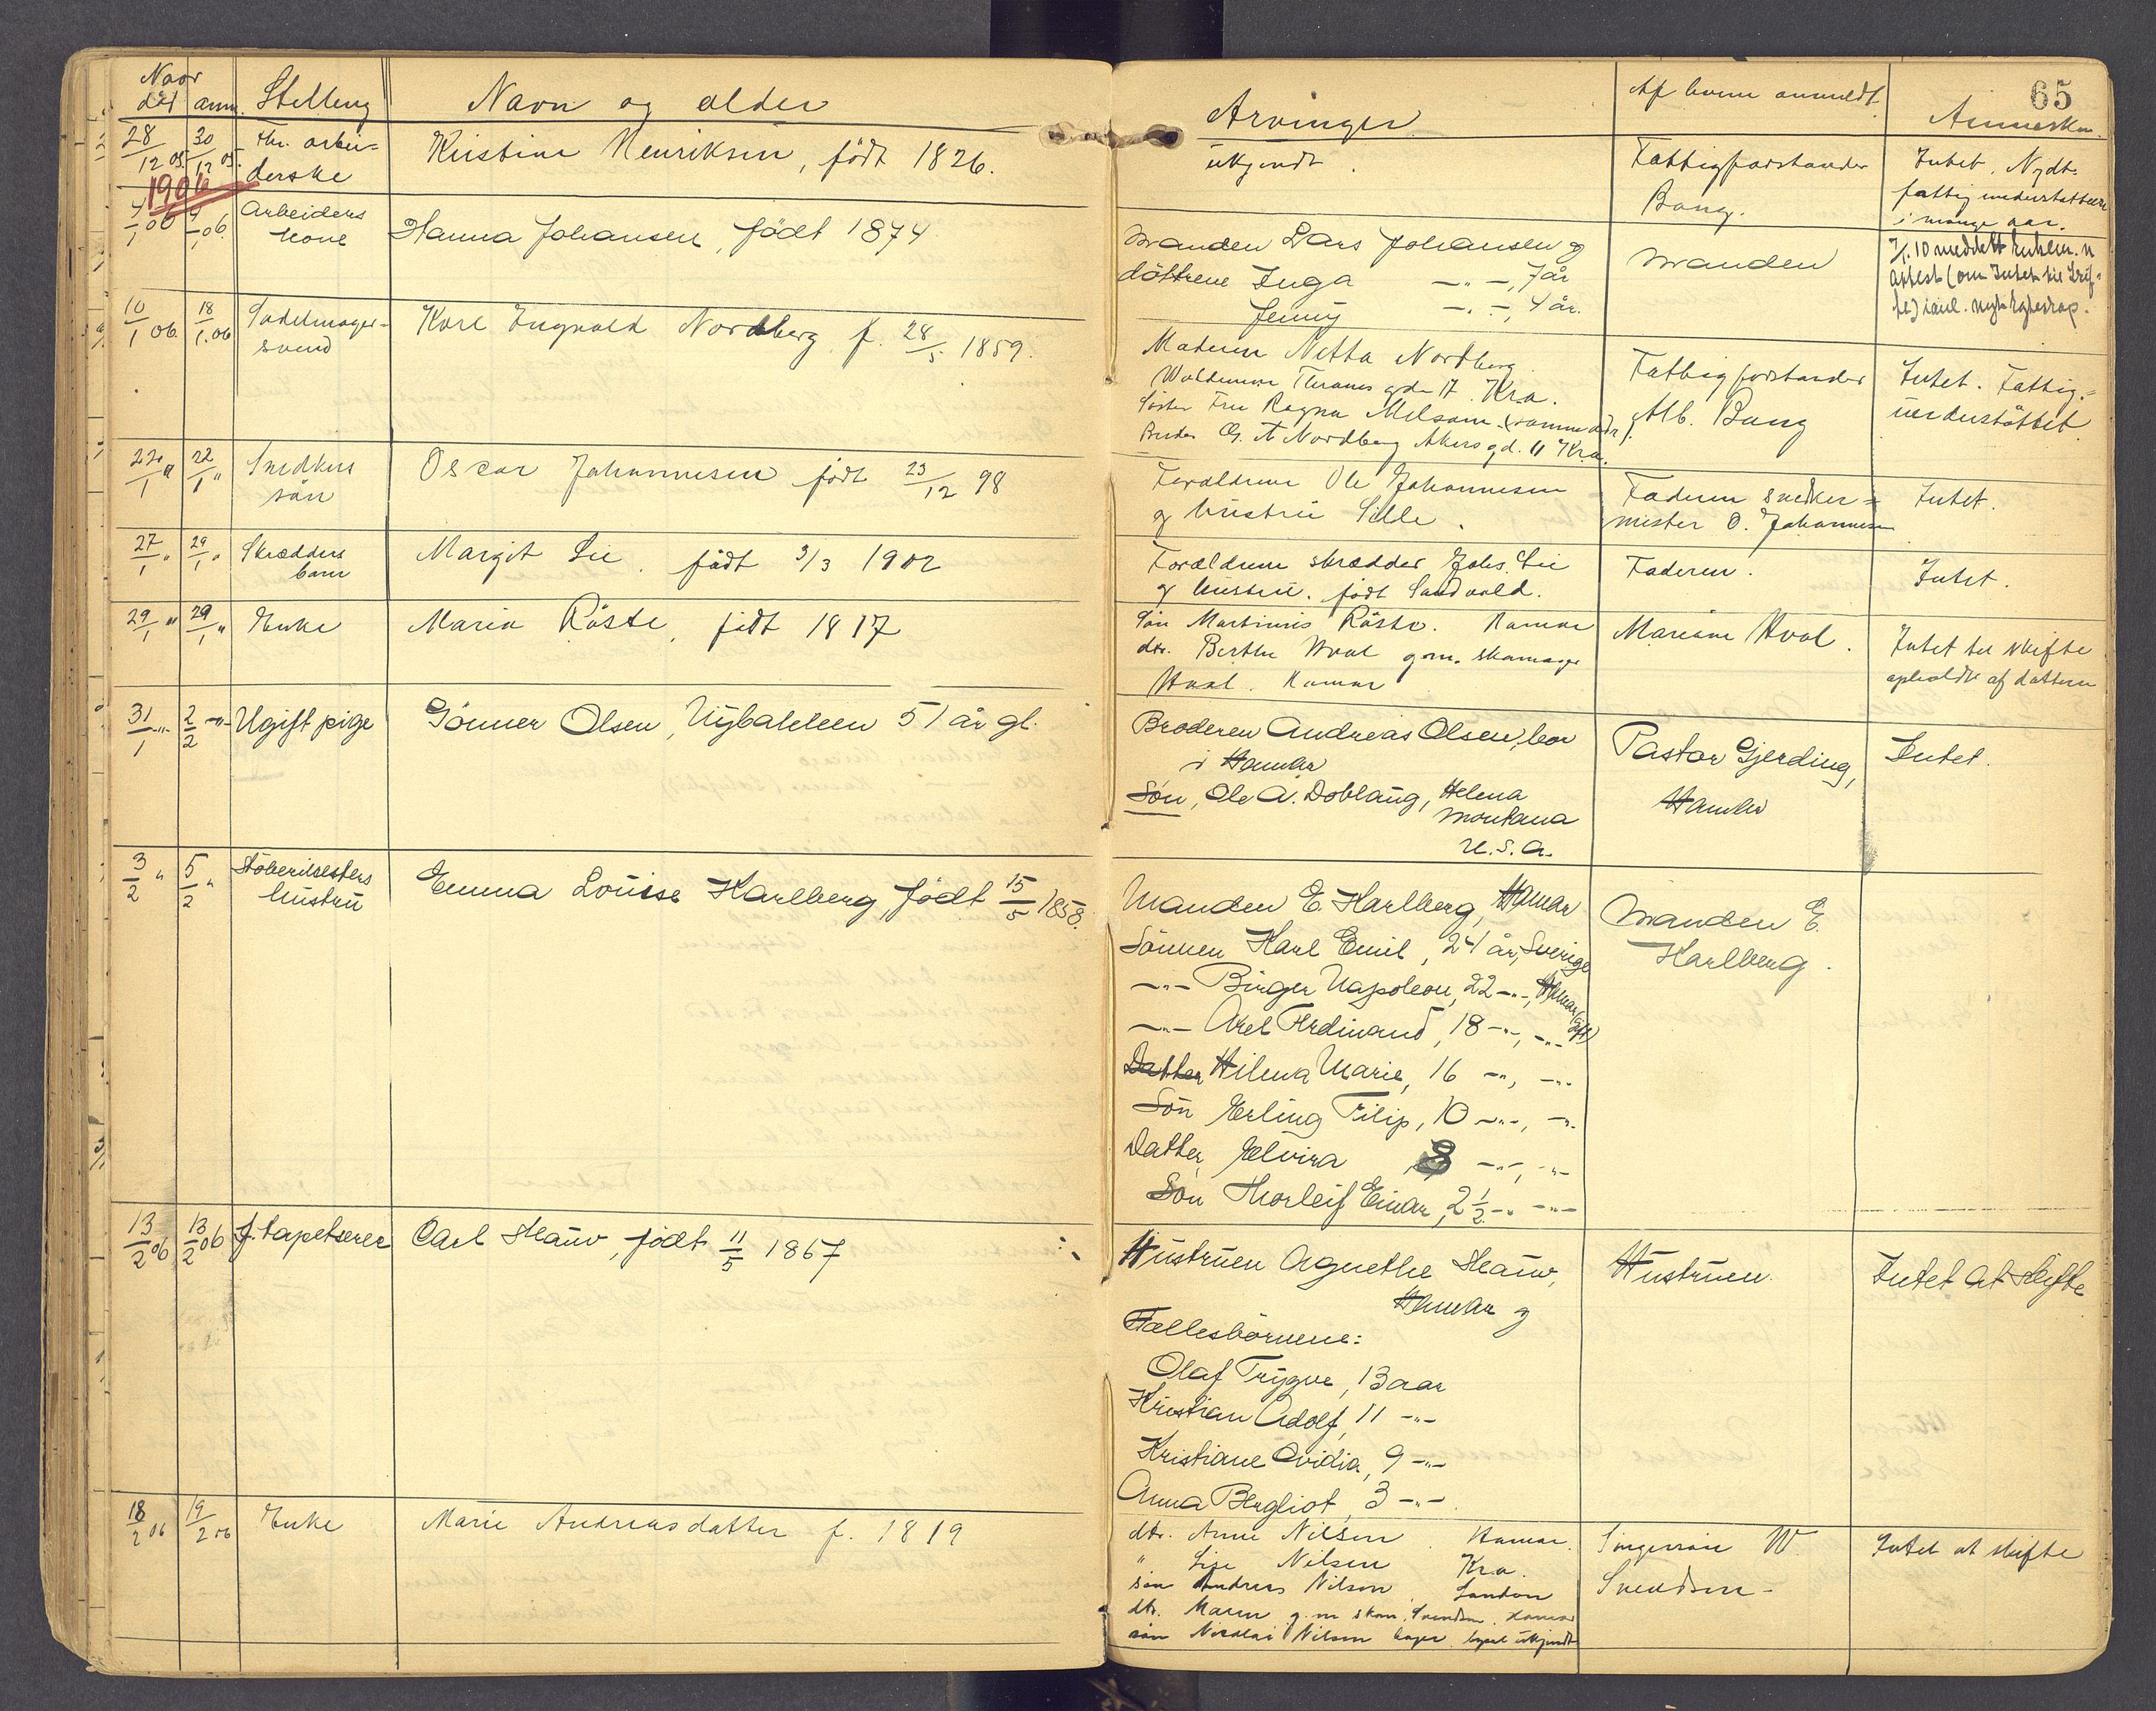 65
Naar
död anm. Stilling Navn og alder Arvinger Af hvem anmeldt Anmerkn.
28/12 05 30/12 05. Fhv. arbei=
derske
Kristine Henriksen, född 1826.
ukjendt.
Fattigforstander
Bang.
Intet. Nydt
fattigunderstøttelse
i mange aar.
1906
4/1 06 4/1 06. Arbeiders
kone
Hanna Johansen, född 1874
Manden Lars Johansen og
döttrene Inga —"—, 7 år
Jenny —"—, 4 år.
Manden
10/1 06. 18/1. 06 Sadelmager-
svend
Karl Ingvald Nordberg f. 28/5 1859.
Moderen Netta Nordberg
Waldemar Thranes gde 17. Kra.
Søster Fru Ragna Melsom (samme adr.)
Broder Nordberg Akersgd. 11 Kra.
Fattigforstander
Alb. Bang
Intet. Fattig=
understöttet.
22/1 " 22/1 " Snedkers
sön
Oscar Johannesen född 23/12 98
Forældrene Ole Johannesen
og hustru
Faderen snedker=
mester O. Johannesen
Intet.
27/1 " 29/1 " Skrædders
barn
Margit Lie. född 3/3 1902
Forældrene skrædder Johs. Lie
og hustru. född Sandvold.
Faderen.
Intet.
29/1 " 29/1 " Enke
Maria Röste, född 1817
Sön Martinius Röste. Hamar
dtr. Berthe Hval g.m. skomager
Hval. Hamar
Mariane Hval.
Intet til skifte
opholdt af datteren
31/1 —"— 2/2 —"— Ugift pige
Gönner Olsen, Nybakken 51 år gl.
Broderen Andreas Olsen, bor
i Hamar
Sön, Ole A. Doblaug, Helena
Montana
U.S.A.
Pastor Gjerding,
Hamar
Intet.
3/2 " 5/2 " Stöberimesters
hustru
Emma Louise Karlberg, född 15/5 1858.
Manden E. Karlberg, Hamar
Sönnen Karl Emil, 24 år, Sverige
—"— Birger Napoleon, 22 —"—, Hamar (gift)
—"— Axel Ferdinand, 18 —"—, —"—
Datter Hilma Marie, 16 —"—, —"—
Sön Erling Filip, 10 —"—, —"—
Datter, Elvira 8 —"—, —"—
Sön Thorleif Einar, 2 1/2 —"— —"—
Manden E.
Karlberg.
13/2 06 13/2 06 f. tapetserer
Carl Hauw, född 11/5 1867
Hustruen Agnethe Hauw,
Hamar og
Fællesbörnene:
Olaf Trygve, 13 aar
Kristian Adolf, 11 —"—
Kristiane Ovidia, 9 —"—
Anna Bergliot, 3 —"—.
Hustruen.
Intet at skifte
18/2 06 19/2 06 Enke
Marie Andreasdatter f. 1819
dtr. Anne Nilsen. Hamar.
" Lise Nilsen Kra.
sön Andreas Nilsen, London
dtr. Maren g.m skom. Svendsen. Hamar
sön Nicolai Nilsen ukjendt
W.
Svendsen-
Intet at skifte